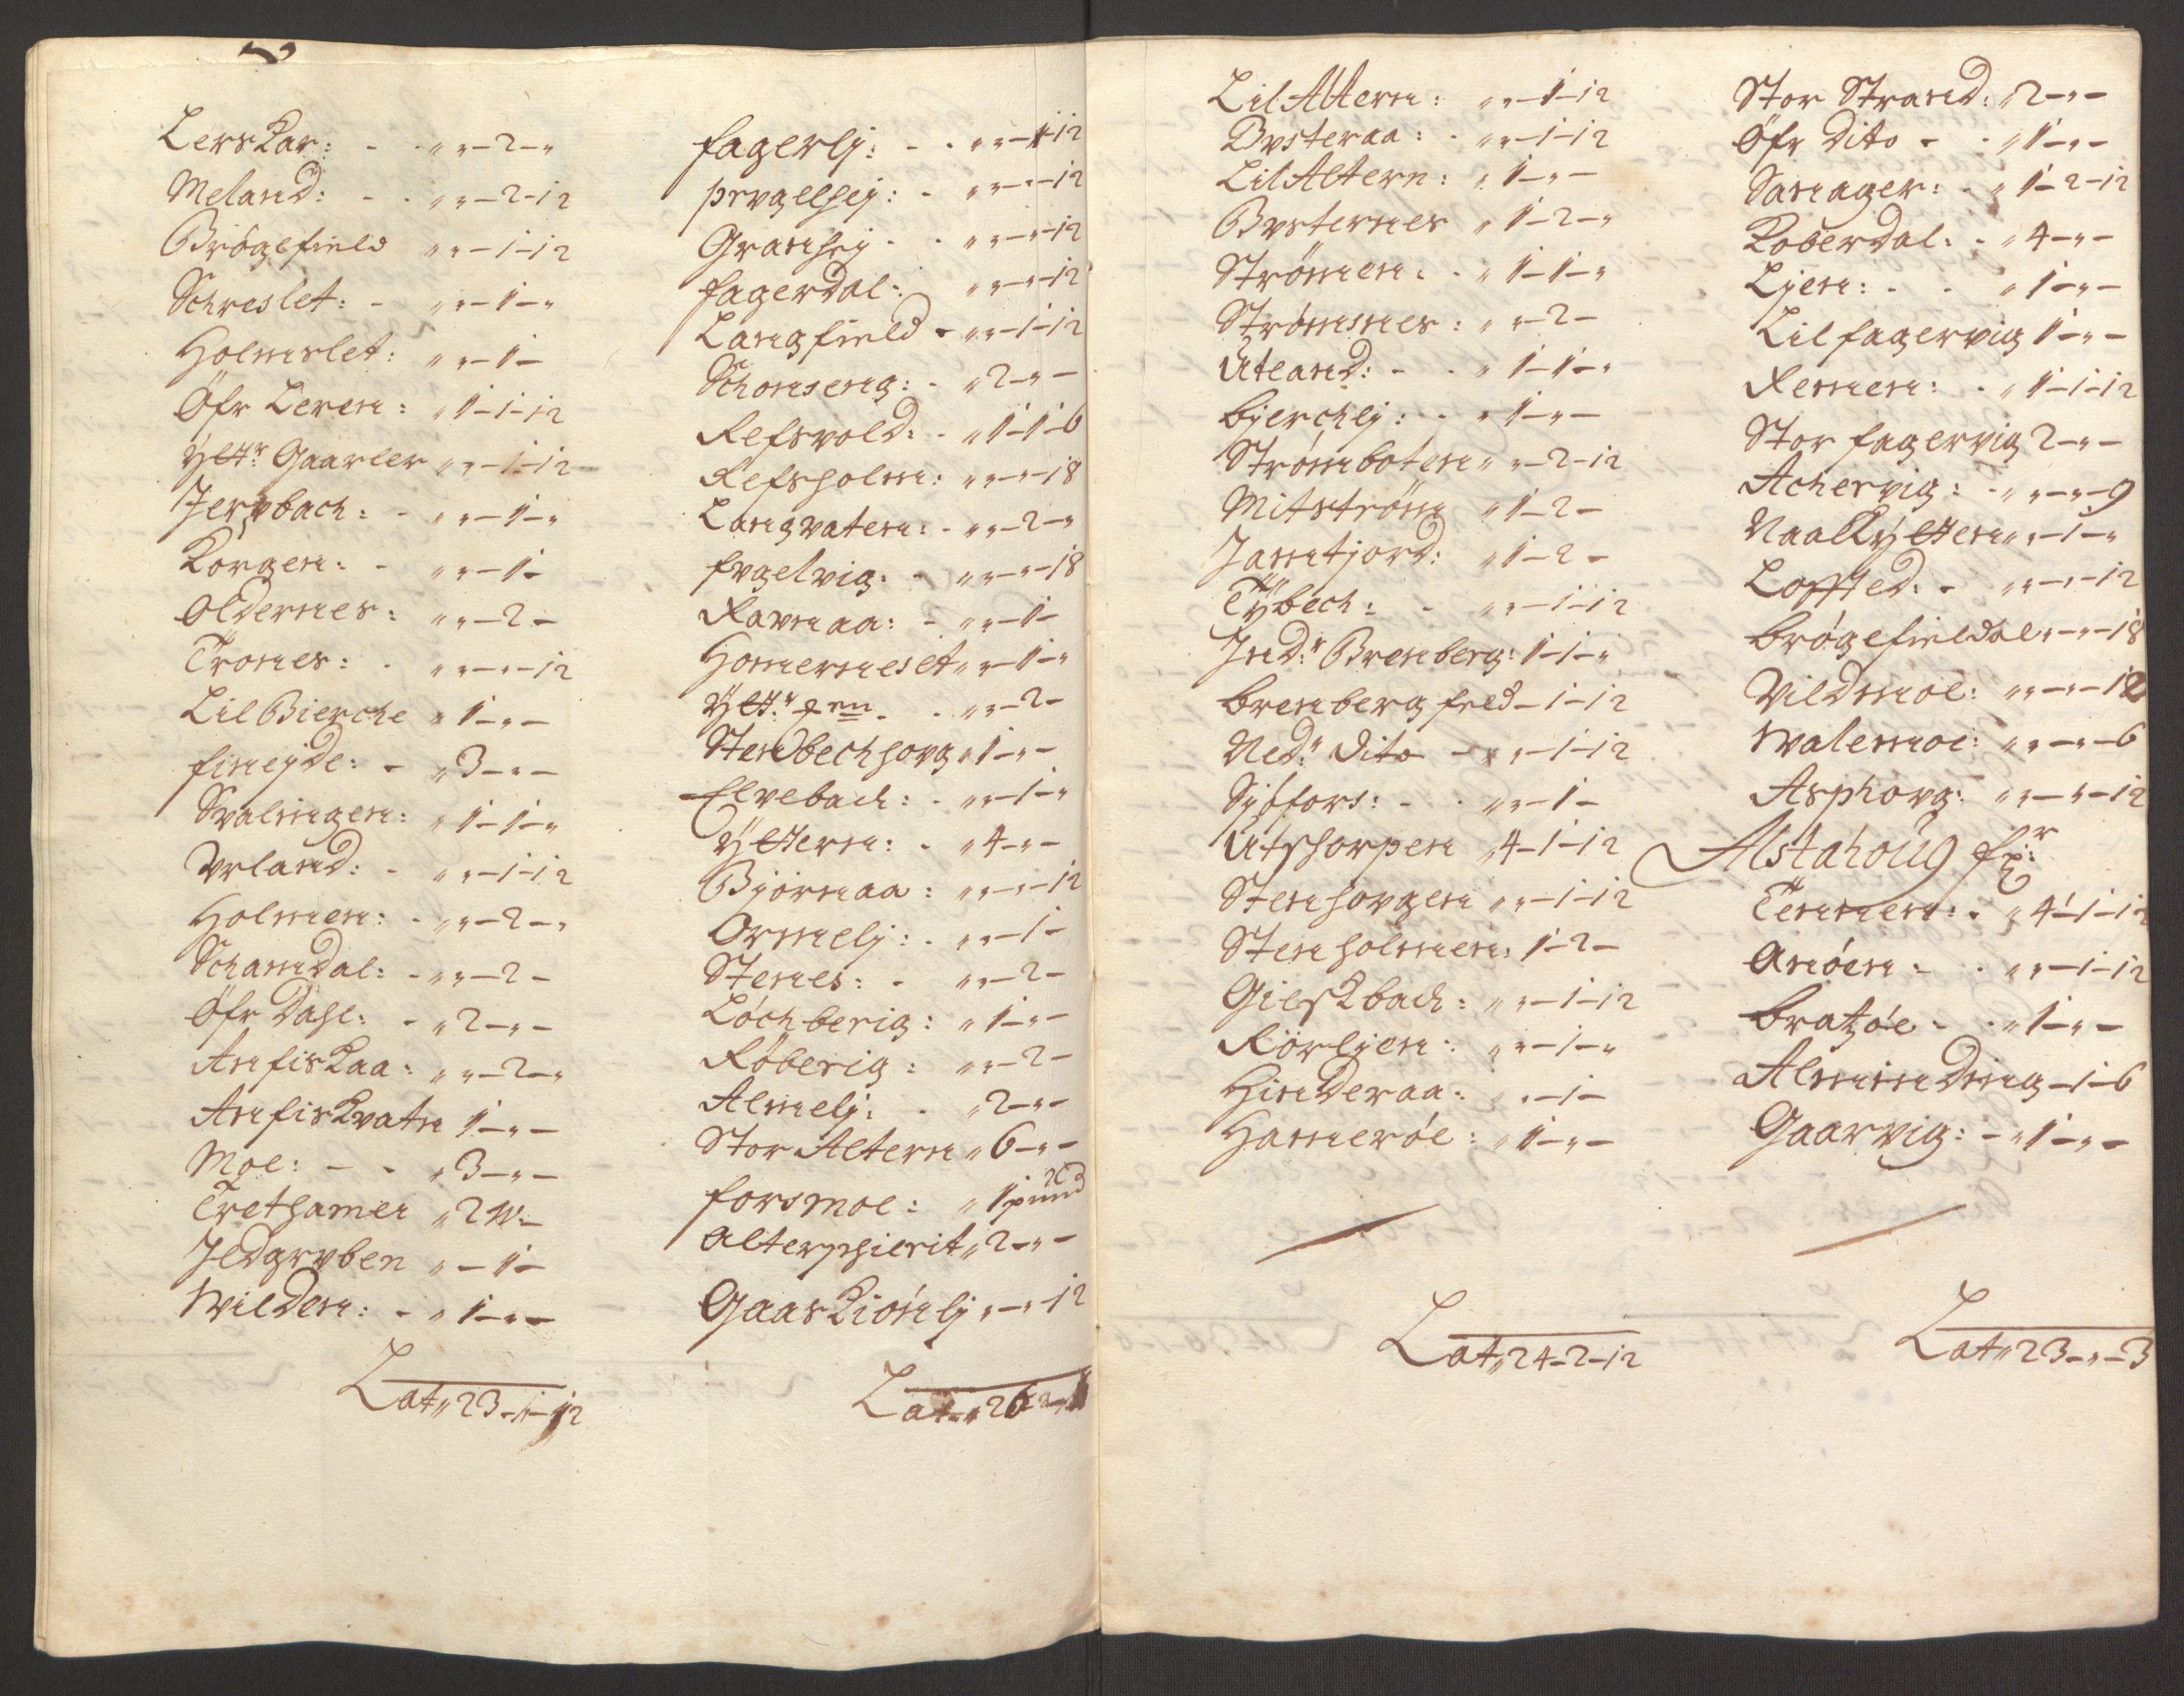 LersKar: - - „ „ - 2 - „
Meland: - - „ „ - 2 - 12
Brögefield „ „ - 1 - 12
Schreslet: - „ „ - 1 - „
Holmslet: „ „ - 1 -
Öfr Leren: „ 1 - 1 - 12
Yttr Gaarler „ „ - 1 - 12
Jervbach: - „ „ - 1 - „
Korgen: - „ „ - 1 -
Oldernes: „ „ - 2 -
Trones: - „ „ - „ - 12
Lil Bierche „ 1 - „ -
fineyde: - „ 3 - „ -
Svalingen: „ 1 - 1 - „
Vrland: - „ „ - 1 - 12
Holmen: - „ „ - 2 - „
Schamdal: - „ „ - 2 -
Öfr Dahl: - „ 2 - „ -
AnfisKaa: „ „ - 2 - „
AnfisKvatn 1 - „ -
Moe: - - „ 3 - „ -
Trethamer „ 2 W: -
Jedgrvben „ - 1 -
Wilden: - „ 1 - „ -
Lat „ 23 - 1 - 12
fagerlj: - - „ „ - 1 - 12
prvgelhej: - „ „ - „ - 12
Granhej - - „ „ - „ - 12
fagerdal: „ „ - „ - 12
Langfield - „ „ - 1 - 12
Schonseng: - „ 2 - „ -
Refsvold: - „ 1 - 1 - 6
Refsholm: „ „ - „ - 18
Langvaten: - „ „ - 2 - „
fvgelvig: - „ „ - „ - 18
Ravnaa: - „ „ - 1 -
Homerneset „ „ - 1 - „
Ytt:r - „ „ - 2 -
Stenbechhovg „ 1 - „ -
Elvebach: - „ „ - 1 - „
Yttern: - „ 4 - „ -
Björnaa: „ „ - „ - 12
Ormelj: - „ „ - 1 -
Stenes: - „ „ - 2 -
Löchberig: „ 1 - „ -
Röberig: „ „ - 2 -
Almelj: - „ 2 - „ -
Stor Altern „ 6 - „ -
forsmoe: „ 1 pund
Alterschierit „ 2 - „ -
GaasKiönlj „ - „ - 12
Lat „ 26
Lil Altern: „ „ - 1 - 12
Bvsteraa: - „ „ - 1 - 12
Lil Altern: „ 1 - „ -
Bvsternes „ 1 - 2 - „
Strömen: - „ 1 - 1 - „
Strömsnes: „ „ - 2 -
Uteand: - - „ 1 - 1 - „
bjerchlj: - „ 1 - „ -
Strömboten „ „ - 2 - 12
Mitström „ 1 - 2 -
Jamtjord: „ 1 - 2 -
Tybech: - „ „ - 1 - 12
Ind:r Brenberg: 1 - 1 - „
brenberg fred - 1 - 12
Ned:r Dito - „ „ - 1 - 12
Sjöfors: - - „ „ - 1 -
Utschorpen „ 4 - 1 - 12
Stenhovgen „ „ - 1 - 12
Stenholmen: 1 - 2 -
GiesKbach: „ „ - 1 - 12
Rörljen: „ „ - 1 - „
Hinderaa: „ „ - 1 -
Hameröe: „ 1 - „ -
Lat „ 24 - 2 - 12
Stor Strand: „ 2 - „ -
Öfr Dito - - „ 1 - „ -
Sanager: - „ 1 - 2 - 12
Koberdal: - „ 4 - „ -
Ljen: - - „ 1 - „ -
Lil fagervig 1 - „ -
Remen: - „ 1 - 1 - 12
Stor fagervig 2 - „ -
Achervig: - „ „ - „ - 9
NaalKytten „ „ - 1 - „
Lofted: - „ „ - „ - 12
brögefieldal „ - „ - 18
Vildmoe: „ „ - „ - 12
Walemoe: „ „ - „ - 6
Asphovg: „ „ - „ - 12
Alstahoug
Tennen: - „ 4 - 1 - 12
Anöen: - - „ „ - 1 - 12
bratzöe - - „ 1 - „ -
Alminding - 1 - 6
Gaarvig: - „ 1 - „ -
Lat „ 23 - „ - 3